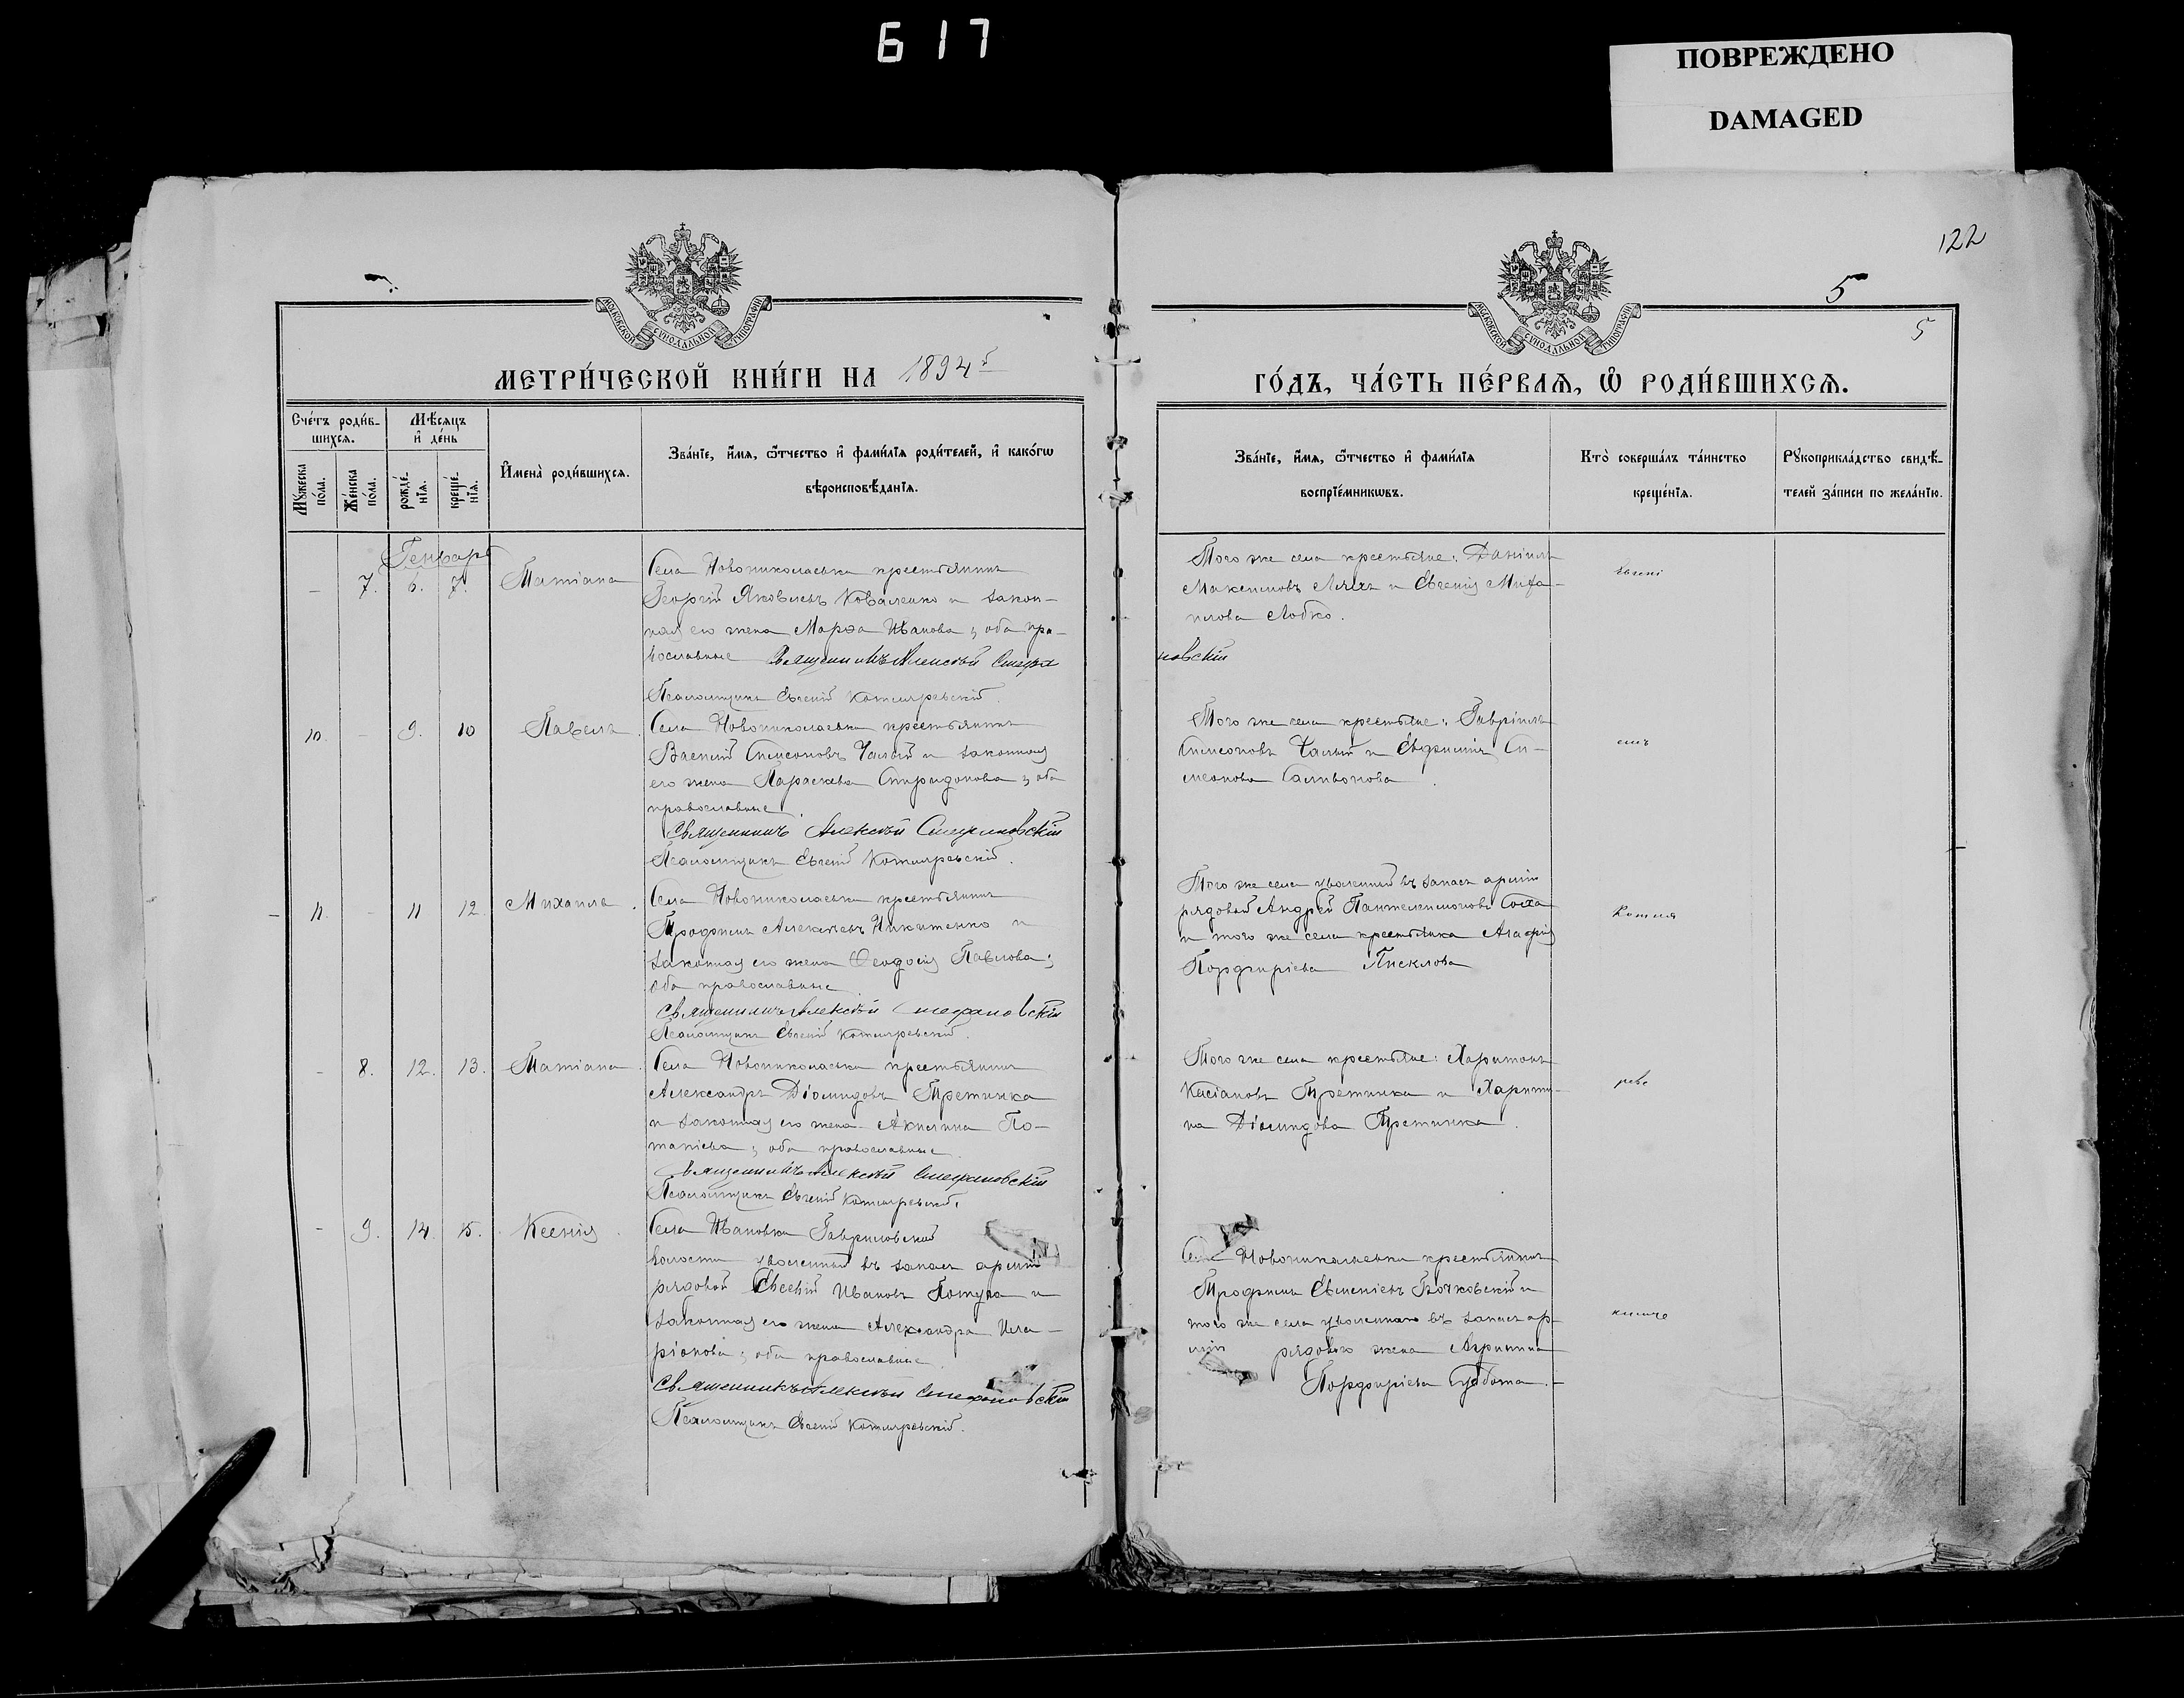 617
ПОВРЕЖДЕНО
DAMAGED
122
5
5
МОСКОВСКОЙ СѴНОДАЛЬНОЙ ТИПОГРАФІИ
МОСКОВСКОЙ СѴНОДАЛЬНОЙ ТИПОГРАФІИ
МЕТРИ́ЧЕСКОЙ КНИ́ГИ НА 1894
ГО́ДЪ, ЧА́СТЬ ПЕ́РВАЯ, Ѽ РОДИ́ВШИХСЯ.
Сче́тъ роди́в-
шихся.
Мѣ́сяцъ
и де́нь
Му́жеска
по́ла.
Же́нска
по́ла.
рожде́-
нїя.
креще́-
нїя.
Имена̀ роди́вшихся.
Зва́нїе, и́мя, ѻ́тчество и фами́лїя роди́телей, и како́гѡ
вѣроисповѣ́данїя.
Зва́нїе, и́мя, ѻ́тчество и фами́лїя
воспрїе́мникѡвъ.
Кто̀ соверша́лъ та́инство
креще́нїя.
Рꙋкоприкла́дство свидѣ́-
телей за́писи по жела́нїю.
Генварь
- 7. 6. 7. Татіана
Села Новониколаевки крестьянинъ
Георгій Яковлевъ Коваленко и закон-
ная его жена Марѳа Иванова; оба пра-
вославные Священникъ Алексѣй Стефа
Псаломщикъ Евгеній Котляревскій.
Того же села крестьяне: Даніилъ
Максимовъ Лячъ и Евгенія Миха-
илова Лобко.
новскій
Евгені
10. - 9. 10 Павелъ.
Села Новониколаевки крестьянинъ
Василій Симеоновъ Чалый и законная
его жена Параскева Спиридонова; оба
православные.
Священникъ Алексѣй Стефановскій
Псаломщикъ Евгеній Котляревскій.
Того же села крестьяне: Гавріилъ
Симеоновъ Чалый и Евфимія Си-
меонова Саливонова.
емъ
- 11. - 11 12. Михаилъ.
Села Новониколаевки крестьянинъ
Трофимъ Алексѣевъ Никитенко и
законная его жена Ѳеодосія Павлова;
оба православные.
Священникъ Алексѣй Стефановскій
Псаломщикъ Евгеній Котляревскій.
Того же села уволенный въ запасъ арміи
рядовой Андрей Пантелеимоновъ Соха
и того же села крестьянка Агафія
Порфиріева Писклова
Котля
- 8. 12. 13. Татіана.
Села Новониколаевки крестьянинъ
Александръ Діомидовъ Третинка
и законная его жена Акилина По-
тапіева; оба православные.
Священникъ Алексѣй Стефановскій
Псаломщикъ Евгеній Котляревскій.
Того же села крестьяне: Харитонъ
Касіановъ Третинка и Харити-
на Діомидова Третинка.
ревс
- 9. 14. 15. Ксенія.
Села Ивановки Гавриловской
волости уволенный въ запасъ арміи
рядовой Евсевій Ивановъ и
законная его жена Александра Ила-
ріонова; оба православные.
Священникъ Алексѣй Стефановскій
Псаломщикъ Евгеній Котляревскій.
Села Новониколаевки крестьянинъ
Трофимъ Евменіевъ Бочковскій и
того же села уволеннаго въ запасъ ар-
міи рядового жена Агрипина
Порфиріева Субота.-